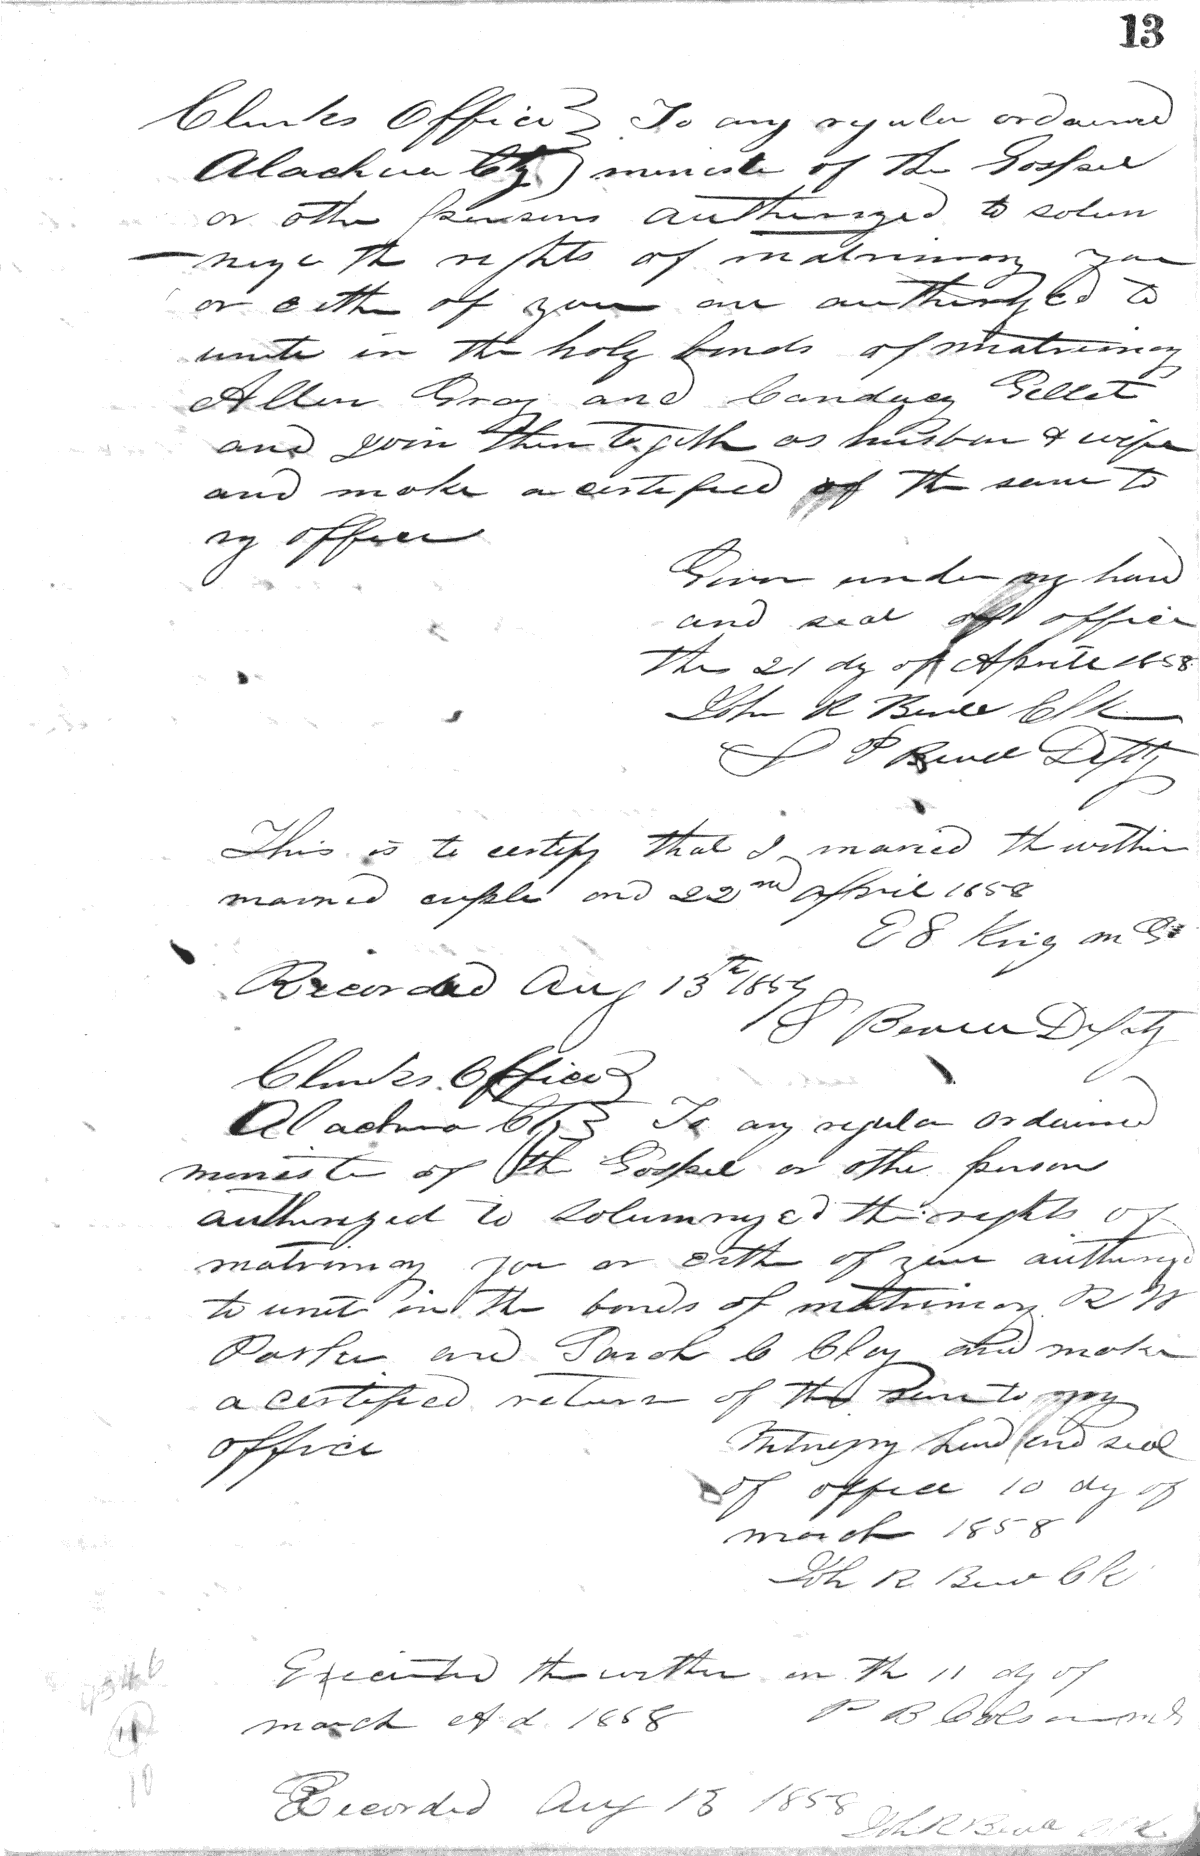 13
Clerks Office } To any reguler ordained
Alachua Cty } ministe of the Gospel
or othe persons authorized to solem
nize th rights of matrimony you
or eithe of you are authoryzed to
unite in the holy bonds of matrimony
Allen Gray and Canducy Gellet
and join them togeth as husban & wife
and make a certified of the same to
my office
Given under my hand
and seal of office
the 21 dy of Aprile 1858
John R Bevill Clk
S P Bevill Dpty
This is to certify that I maried th within
married cuple ond 22nd April 1858
E S King M G
Recorded Aug 13th 1858
S Bevill Dpty
Clerks Office }
Alachua Cty } To any regular ordained
ministe of the Gospel or othe persons
authorized to solumnyzed the rights of
matrimony you or eithe of you authoryd
to unite in the bonds of matrimony R W
Parker and Sarah C Clay and make
a certified return of the same to my
office
Witness my hand and seal
of office 10 dy of
march 1858
Joh R Bevil Clk
Executed the within on th 11 dy of
march A d 1858 P B Colson M G
Recorded Aug 13 1858 Joh R Bevill Clk
11
10